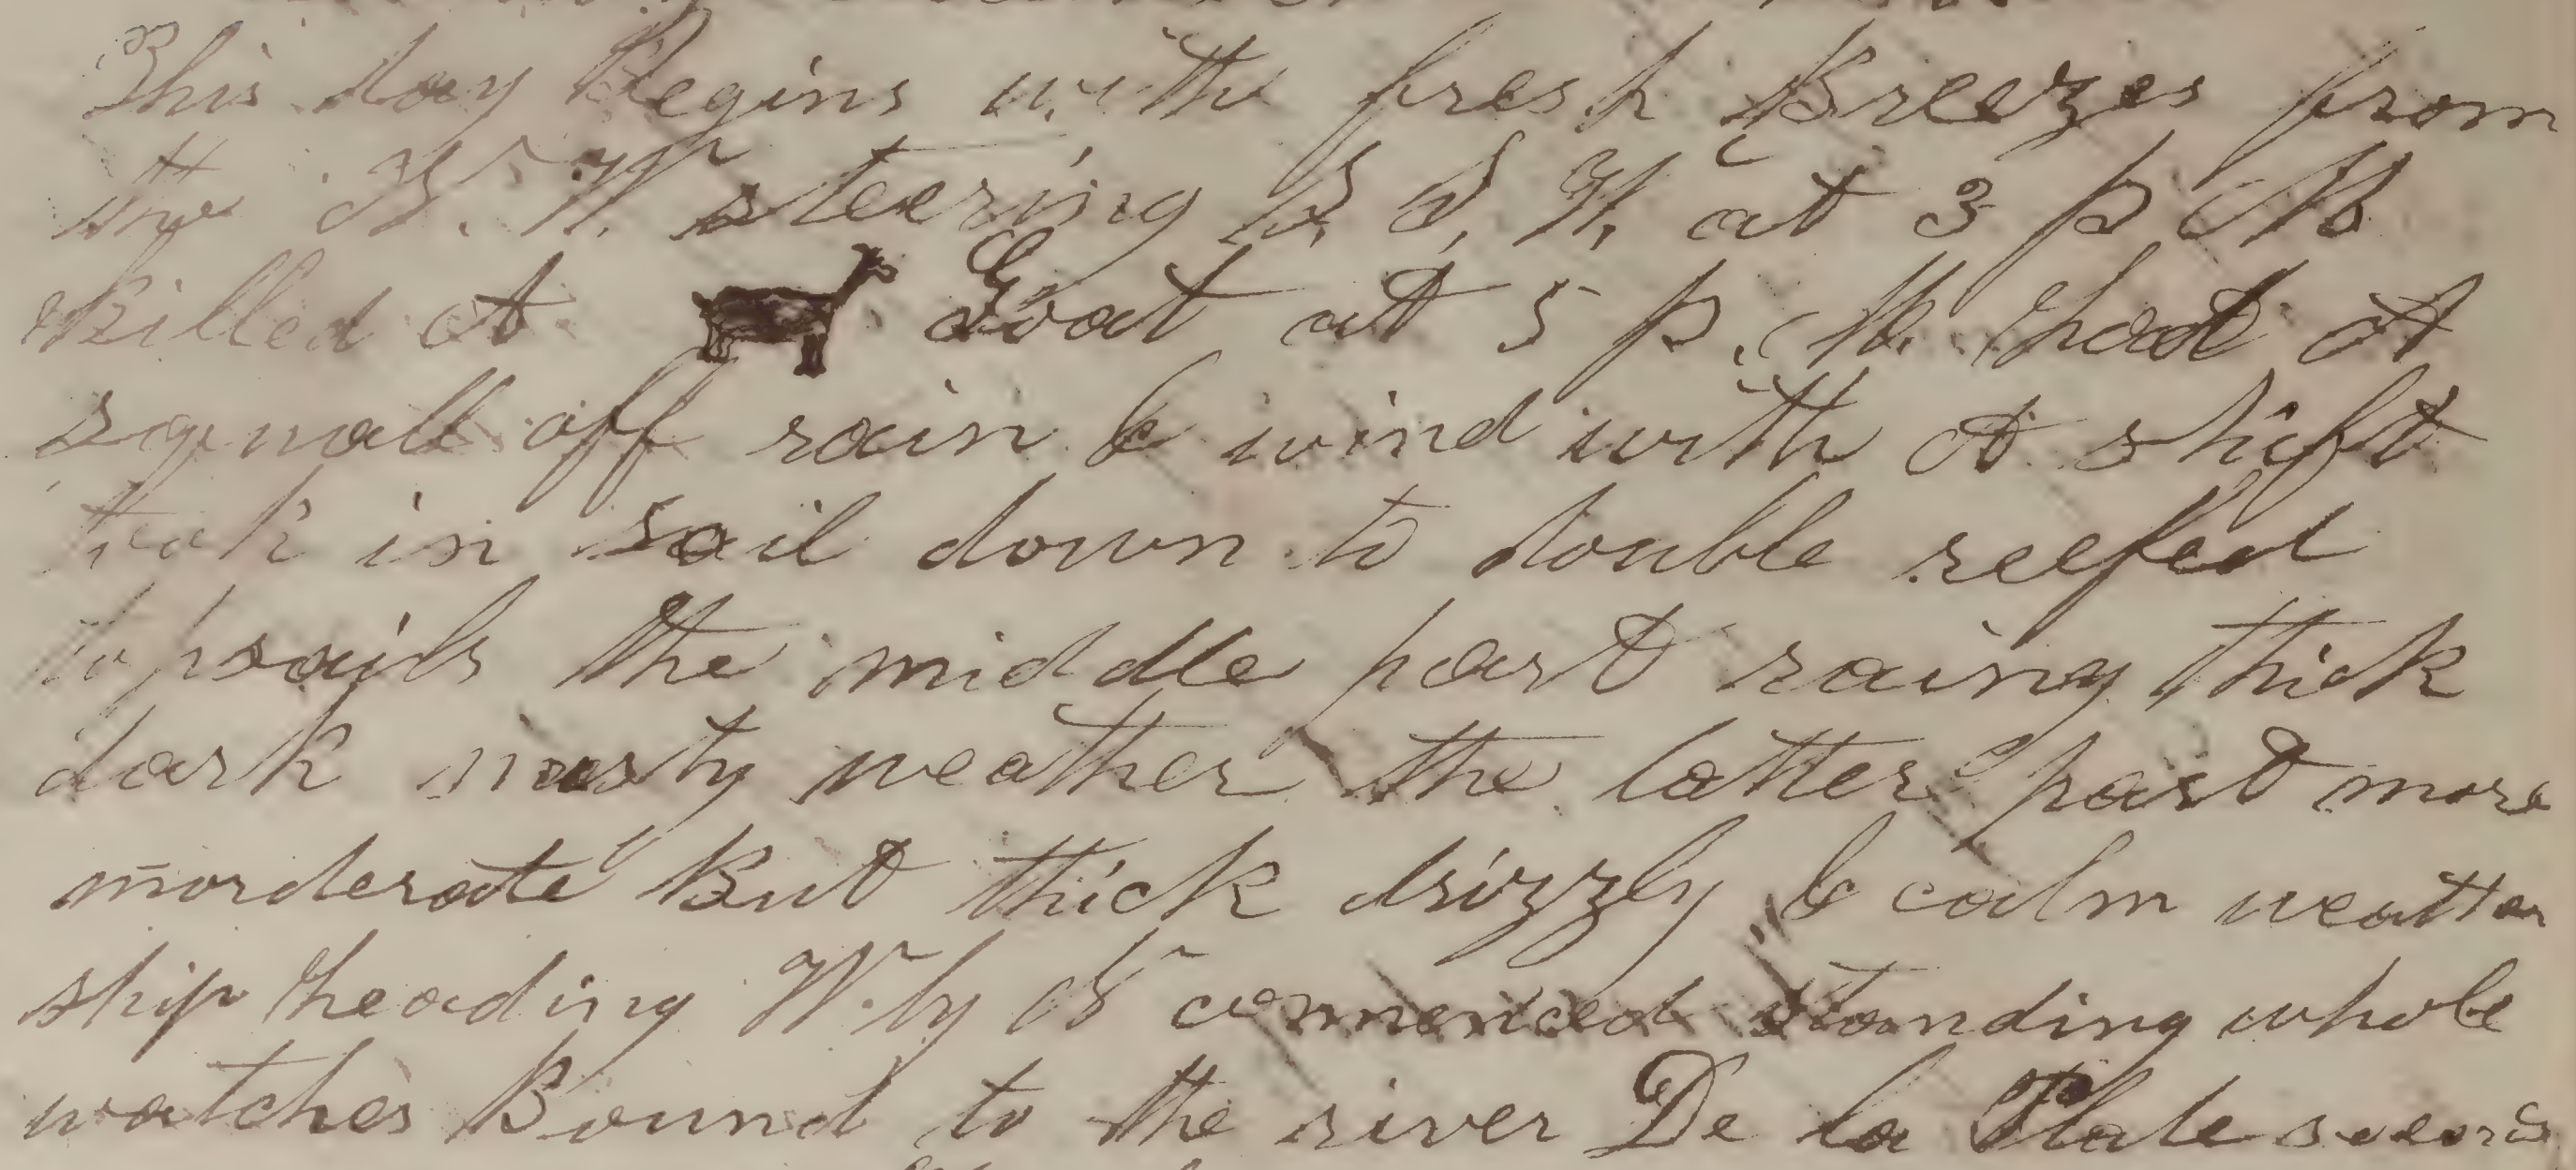 This day Begins with fresh Breezes from
the N. W. steering S, S, W, at 3 P M
Killed A Goat at 5 P. M. had A
sqwall off rain & wind with A shift
took in sail down to double reefed
topsails the middle part rainy thick
dark nasty weather the latter part more
morderate But thick drizzly & calm weather
ship heading W. by S commenced standing whole
watches Bound to the river De la Plate